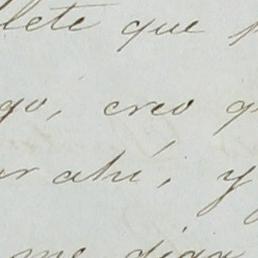 lete que
go, creo q
ar ahí, y
me diga